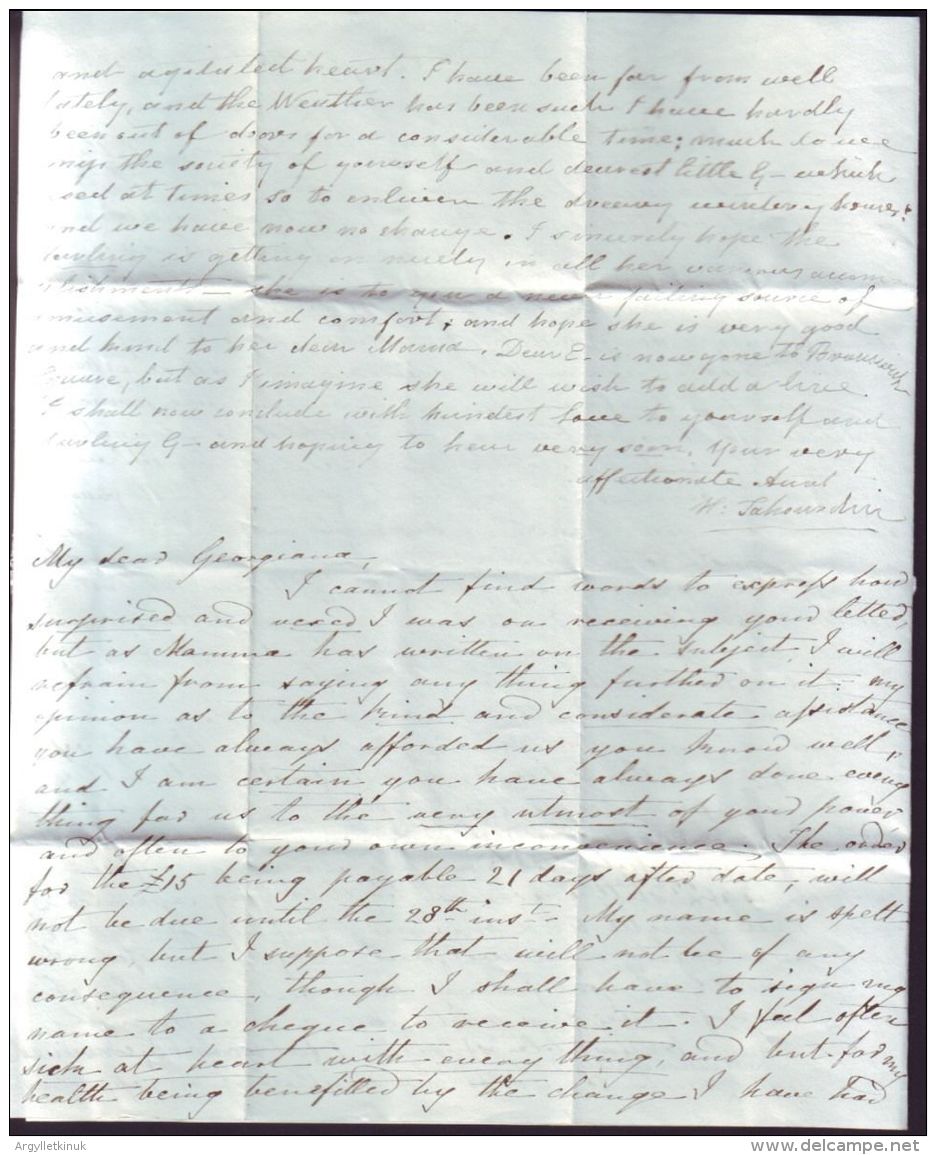 and agitated heart. I have been far from well
lately, and the Weather has been such I have hardly
been out of doors for a considerable time; much do we
the society of yourself and dearest little G- which
used at times so to enliven the dreary wintery hours,
and we have now no change. I sincerely hope the
darling is getting on nicely in all her various accom
plishments - she is to you a never failing source of
amusement and comfort, and hope she is very good
and kind to her dear Mama. Dear E- is now gone to Brunswick
Square, but as I imagine she will wish to add a line
I shall now conclude with kindest love to yourself and
darling G- and hoping to hear very soon, Your very
affectionate Aunt
H:
My dear Georgiana,
I cannot find words to express how
surprised and vexed I was on receiving your letter,
but as Mamma has written on the subject, I will
refrain from saying any thing further on it: my
opinion as to the kind and considerate assistance
you have always afforded us you know well,
and I am certain you have always done every
thing for us to the very utmost of your power,
and often to your own inconvenience. The order
for the £15 being payable 21 days after date, will
not be due until the 28th inst. My name is spelt
wrong, but I suppose that will not be of any
consequence, though I shall have to sign my
name to a cheque to receive it. I feel often
sick at heart with every thing, and but for my
health being benefitted by the change I have had
Argylletkinuk
www.delcampe.net